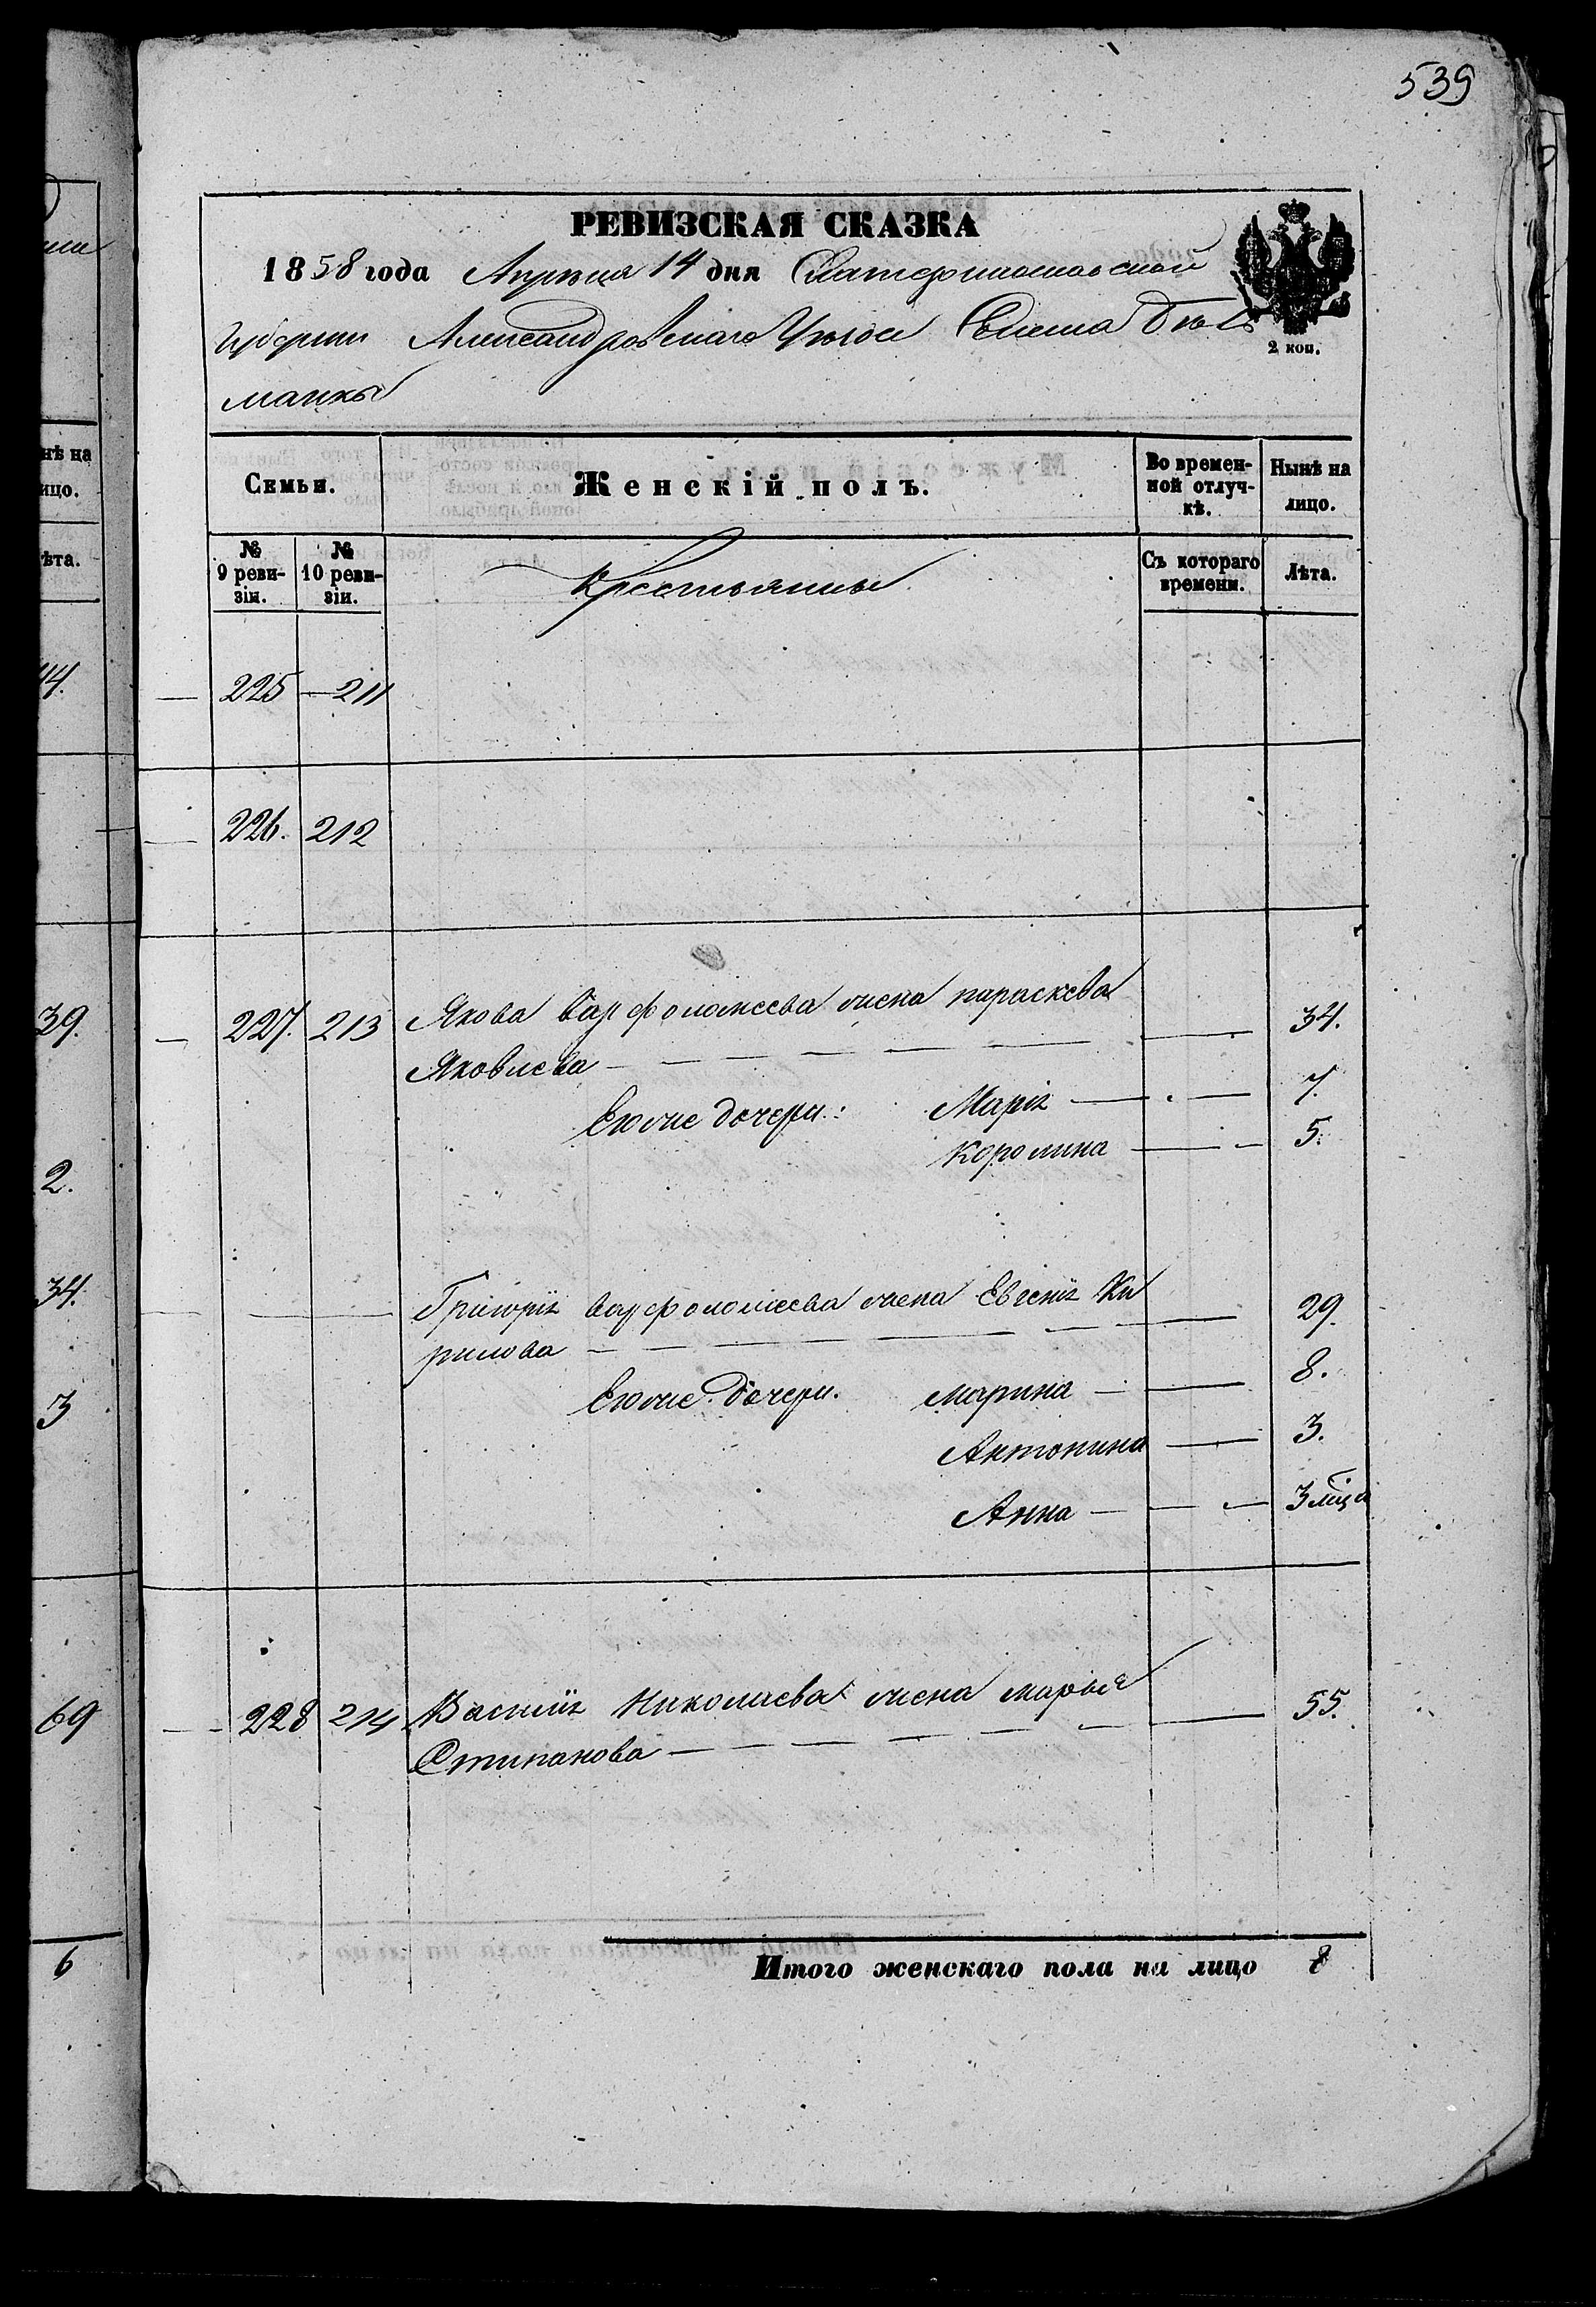 539
РЕВИЗСКАЯ СКАЗКА
1858 года Апрѣля 14 дня Екатеринославской
Губерніи Александровскаго Уѣзда Селенія Бѣль
манки
2 коп.
Семьи.
Женскій полъ.
Во времен-
ной отлуч-
кѣ.
Нынѣ на
лицо.
№
9 реви-
зіи.
№
10 реви-
зіи.
Крестьяныи
Съ котораго
времени.
Лѣта.
225 — 211
226. 212
227. 213 Якова Варфоломеева жена параскева 34.
Яковлева
Егоже дочери: Марія 7.
Королина 5.
Григорія Варфоломеева жена Евгенія Ки 29.
рилова
Егоже дочери. марина 8.
Антонина 3.
Анна 3 мца
228 214 Василія Николаева жена марья 55.
Стипанова
Итого женскаго пола на лицо 8
нѣ на
ицо.
ѣта.
44.
39.
2.
34.
3
69
6